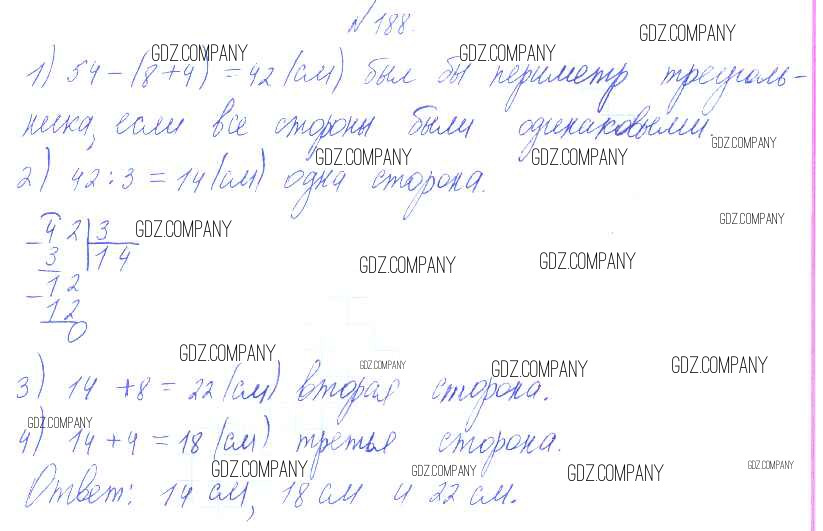 №188.
GDZ.COMPANY GDZ.COMPANY GDZ.COMPANY
1) 54-(8+4)=42(см) был бы периметр треуголь-
ника, если все стороны были одинаковыми.
GDZ.COMPANY GDZ.COMPANY GDZ.COMPANY
2) 42:3=14(см) одна сторона.
GDZ.COMPANY
42|3 GDZ.COMPANY
3 14
GDZ.COMPANY GDZ.COMPANY
-12
12
0
GDZ.COMPANY GDZ.COMPANY GDZ.COMPANY GDZ.COMPANY
3) 14+8=22(см) вторая сторона.
GDZ.COMPANY
4) 14+4=18(см) третья сторона.
GDZ.COMPANY GDZ.COMPANY GDZ.COMPANY GDZ.COMPANY
Ответ: 14 см, 18 см и 22 см.